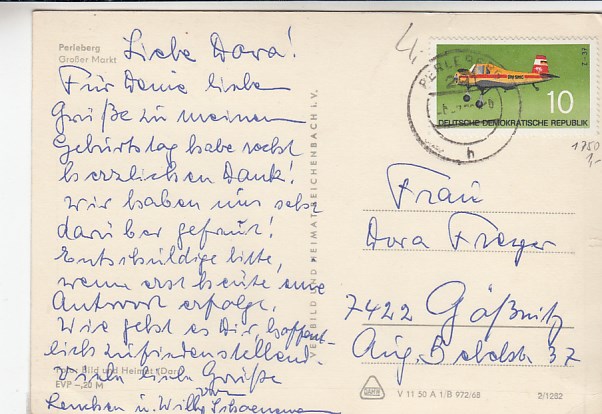 Perleberg
Großer Markt
Liebe Dora!
Für Deine lieben
Grüße zu meinem
Geburtstag habe recht
herzlichen Dank!
Wir haben uns sehr
darüber gefreut!
Entschuldige bitte,
wenn erst heute eine
Antwort erfolgt.
Wie geht es Dir hoffent-
lich zufriedenstellend.
Viele liebe Grüße
u. Willy
Foto: Bild und Heimat
EVP -,20 M
VEB BILD UND HEIMAT REICHENBACH i. V.
PERLEBERG
h
10
DEUTSCHE DEMOKRATISCHE REPUBLIK
1750
Frau
Dora Frieger
7422 Gößnitz
Aug. Bebelstr. 37
V 11 50 A 1/B 972/68
2/1282